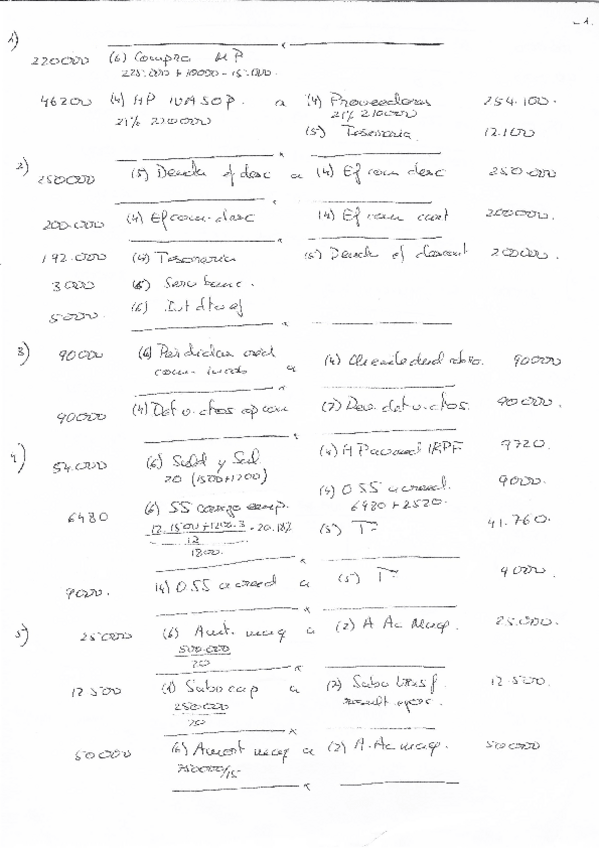 - 1 -
1)
220000 (6) Compra MP
225.000 + 10000 - 15.000.
46200 (4) HP IVA SOP. a (4) Proveedores 254.100.
21% 220000 21% 210000
(5) Tesoreria. 12.100
2) 250000 (5) Deuda ef desc a (4) Ef com desc 250.000
200.000 (4) Ef com. desc (4) Ef com cart 200000.
192.000 (4) Tesoreria (5) Deuda ef descont 200000.
3000 (6) Serv banc.
5000. (6) Int dto ef
3) 90000 (6) Perdidas cred (4) Cliente dud cobro. 90000
com. incob a
90000 (4) Det v. ctos op com (7) Rev. det v. ctos. 90.000.
4) 54.000 (6) Sueld y Sal (4) H P acreed IRPF. 9720.
20 (1500+1200)
6480 (6) SS cargo emp. (4) O SS acreed. 9000.
6480 + 2520.
12 (5) Tª 41.760.
1800.
9000. (4) O SS acreed a (5) Tª 9000.
5) 25000 (6) Amt. maq a (2) A Ac Maq. 25.000.
500.000
20
12500 (1) Subv cap a (7) Subv transf. 12.500.
250000 result ejerc.
20
50000 (6) Amort maq a (2) A. Ac maq. 50000
750000/15